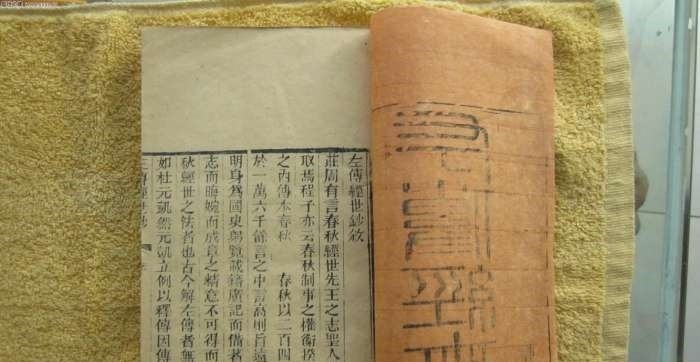 左傳經世鈔敘
莊周有言春秋經世先王之志聖人
取焉程子亦云春秋制事之權衡揆
之内傳本春秋 春秋以二百四
於一萬六千餘言之中言高則旨遠
明身為國史躬覽載籍廣記而備
志而晦婉而成章之精意不可得而
秋經世之法者也古今解左傳者無
如杜元凱然元凱立例以釋傳因傳
左傳經世鈔